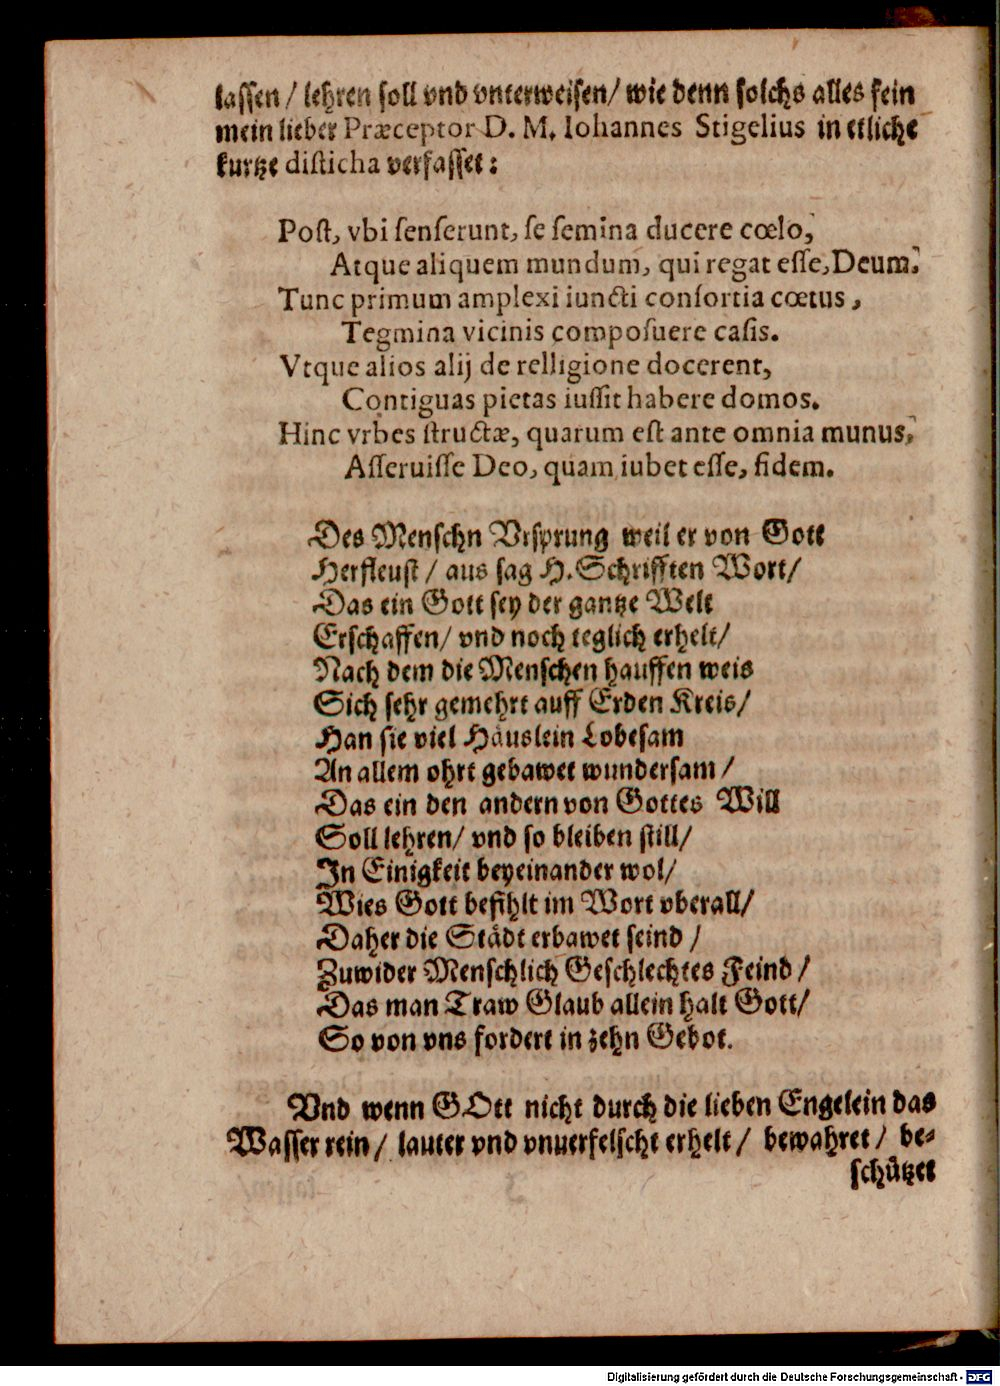 lassen / lehren soll vnd vnterweisen/ wie denn solchs alles fein
mein lieber Præceptor D. M. Iohannes Stigelius in etliche
kurtze disticha verfasset:
Post, vbi senserunt, se semina ducere cœlo,
Atque aliquem mundum, qui regat esse, Deum.
Tunc primum amplexi iuncti consortia cœtus,
Tegmina vicinis composuere casis.
Vtque alios alij de relligione docerent,
Contiguas pietas iussit habere domos.
Hinc vrbes structæ, quarum est ante omnia munus,
Asseruisse Deo, quam iubet esse, fidem.
Des Menschn Vrsprung weil er von Gott
Herfleust / aus sag H. Schrifften Wort/
Das ein Gott sey der gantze Welt
Erschaffen/ vnd noch teglich erhelt/
Nach dem die Menschen hauffen weis
Sich sehr gemehrt auff Erden Kreis/
Han sie viel Häuslein Lobesam
An allem ohrt gebawet wundersam /
Das ein den andern von Gottes Will
Soll lehren/ vnd so bleiben still/
In Einigkeit beyeinander wol/
Wies Gott befihlt im Wort vberall/
Daher die Städt erbawet seind /
Zuwider Menschlich Geschlechtes Feind /
Das man Traw Glaub allein halt Gott/
So von vns fordert in zehn Gebot.
Vnd wenn GOtt nicht durch die lieben Engelein das
Wasser rein / lauter vnd vnuerfelscht erhelt / bewahret / be-
schützet
Digitalisierung gefördert durch die Deutsche Forschungsgemeinschaft - DFG